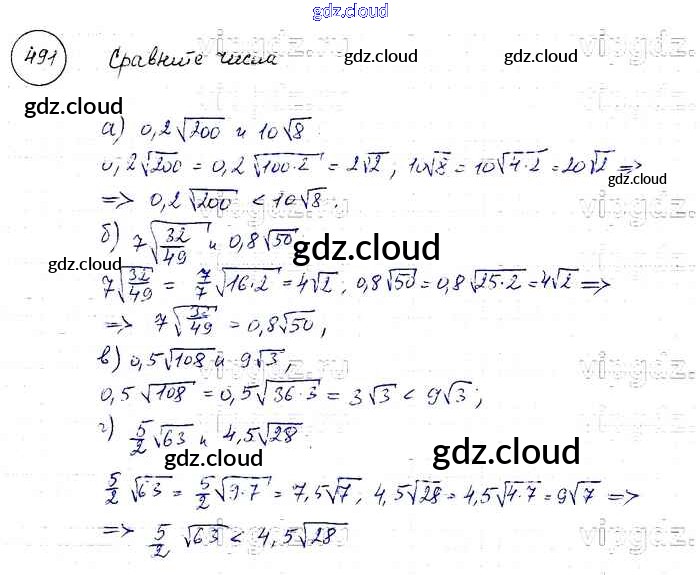 gdz.cloud
491 Сравните числа gdz.cloud gdz.cloud
gdz.cloud
а) 0,2√200 и 10√8.
0,2√200 = 0,2√(100·2) = 2√2, 10√8 = 10√(4·2) = 20√2 =>
gdz.cloud
=> 0,2√200 < 10√8.
б) 7√(32/49) и 0,8√50. gdz.cloud
gdz.cloud
7√(32/49) = 7/7√(16·2) = 4√2, 0,8√50 = 0,8√(25·2) = 4√2 =>
=> 7√(32/49) = 0,8√50,
в) 0,5√108 и 9√3,
0,5√108 = 0,5√(36·3) = 3√3 < 9√3;
г) 5/2√63 и 4,5√28.
gdz.cloud gdz.cloud
5/2√63 = 5/2√(9·7) = 7,5√7, 4,5√28 = 4,5√(4·7) = 9√7 =>
=> 5/2√63 < 4,5√28
gdz.cloud gdz.cloud